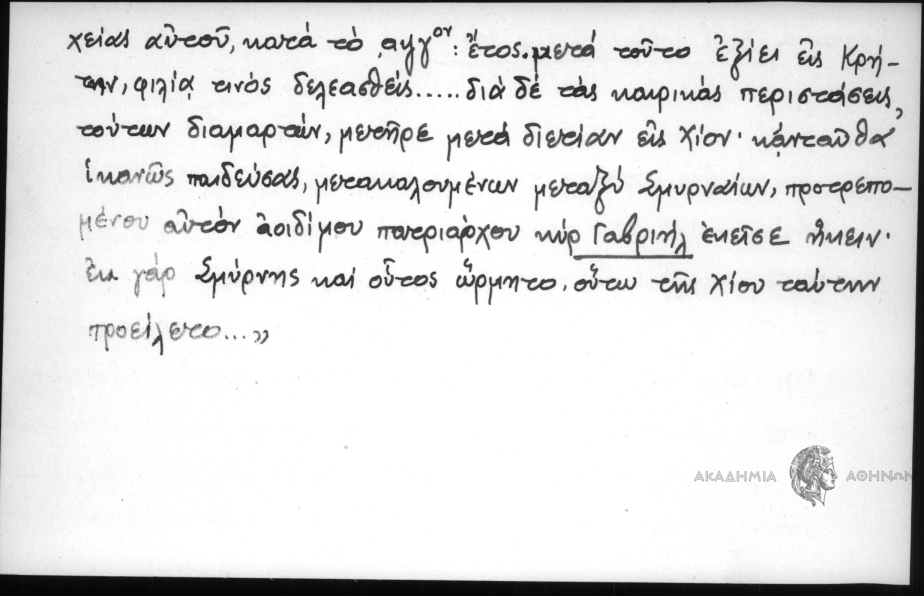 χείας αὐτοῦ, κατὰ τὸ ͵αψγ^ον: ἔτος. μετὰ τοῦτο ἐξίει εἰς Κρή-
την, φιλίᾳ τινὸς δελεασθείς..... διὰ δὲ τὰς καιρικὰς περιστάσεις,
τούτων διαμαρτών, μετῆρε μετὰ διετίαν εἰς Χίον· κἀνταῦθα
ἱκανῶς παιδεύσας, μετακαλουμένων μεταξὺ Σμυρναίων, προτρεπο-
μένου αὐτὸν ἀοιδίμου πατριάρχου κὺρ Γαβριὴλ ἐκεῖσε ἥκειν·
ἐκ γὰρ Σμύρνης καὶ οὗτος ὥρμητο, οὕτω τῆς Χίου ταύτην
προείλετο...»
ΑΚΑΔΗΜΙΑ ΑΘΗΝΩΝ